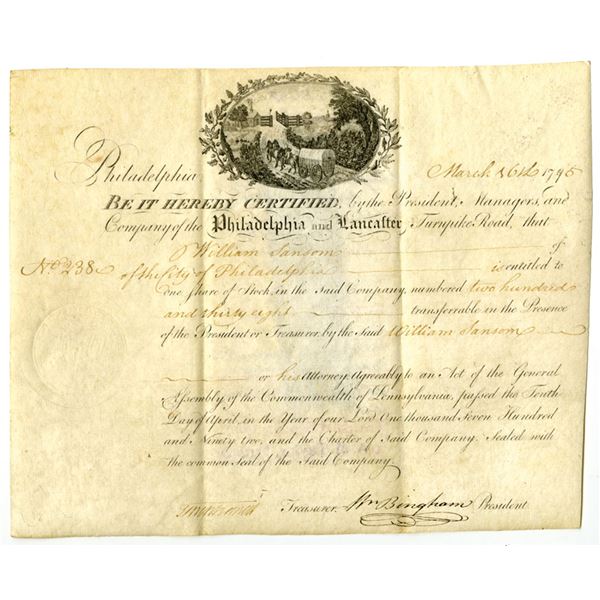 Philadelphia, March 16th 1795
BE IT HEREBY CERTIFIED, by the President, Managers, and
Company of the Philadelphia and Lancaster Turnpike Road, that
William Sansom of
No. 238 of the City of Philadelphia is entitled to
one Share of Stock in the Said Company, numbered two hundred
and thirty eight transferrable in the Presence
of the President or Treasurer, by the Said William Sansom
or his Attorney. Agreeably to an Act of the General
Assembly of the Commonwealth of Pennsylvania, passed the Tenth
Day of April, in the Year of our Lord One thousand Seven Hundred
and Ninety two, and the Charter of Said Company. Sealed with
the common Seal of the Said Company
Treasurer. Wm Bingham President